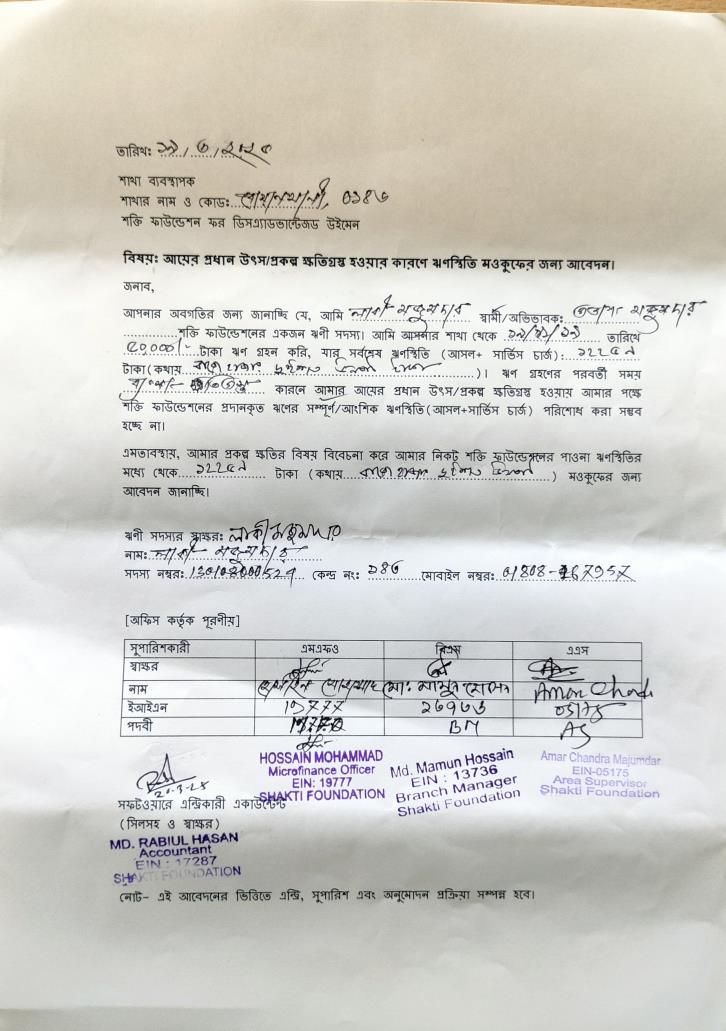 তারিখ:
শাখা ব্যবস্থাপক
শাখার নাম ও কোড: ০১৪৬
শক্তি ফাউন্ডেশন ফর ডিসএ্যাডভান্টেজড উইমেন
বিষয়: আয়ের প্রধান উৎস/প্রকল্প ক্ষতিগ্রস্ত হওয়ার কারণে ঋণস্থিতি মওকুফের জন্য আবেদন।
জনাব,
আপনার অবগতির জন্য জানাচ্ছি যে, আমি লাকী মজুমদার স্বামী/অভিভাবক: মজুমদার
শক্তি ফাউন্ডেশনের একজন ঋণী সদস্য। আমি আপনার শাখা থেকে তারিখে
৫০,০০০/- টাকা ঋণ গ্রহন করি, যার সর্বশেষ ঋণস্থিতি (আসল+ সার্ভিস চার্জ):
টাকা(কথায় )। ঋণ গ্রহণের পরবর্তী সময়
কারনে আমার আয়ের প্রধান উৎস/প্রকল্প ক্ষতিগ্রস্ত হওয়ায় আমার পক্ষে
শক্তি ফাউন্ডেশনের প্রদানকৃত ঋণের সম্পূর্ণ/আংশিক ঋণস্থিতি(আসল+সার্ভিস চার্জ) পরিশোধ করা সম্ভব
হচ্ছে না।
এমতাবস্থায়, আমার প্রকল্প ক্ষতির বিষয় বিবেচনা করে আমার নিকট শক্তি ফাউন্ডেশনের পাওনা ঋণস্থিতির
মধ্যে থেকে টাকা (কথায় ) মওকুফের জন্য
আবেদন জানাচ্ছি।
ঋণী সদস্যর স্বাক্ষর: লাকী মজুমদার
নাম: লাকী মজুমদার
সদস্য নম্বর: কেন্দ্র নং: মোবাইল নম্বর:
[অফিস কর্তৃক পূরণীয়]
সুপারিশকারী এমএফও বিএম এএস
স্বাক্ষর
নাম হোসাইন মোহাম্মাদ মো: মামুন হোসেন Amar Chandra
ইআইএন 19777 ১৩৭৩৬ 05175
পদবী BM AS
HOSSAIN MOHAMMAD
Microfinance Officer
EIN: 19777
SHAKTI FOUNDATION
Md. Mamun Hossain
EIN : 13736
Branch Manager
Shakti Foundation
Amar Chandra Majumdar
EIN-05175
Area Supervisor
Shakti Foundation
সফটওয়ারে এন্ট্রিকারী একাউন্টেন্ট
(সিলসহ ও স্বাক্ষর)
MD. RABIUL HASAN
Accountant
EIN : 17287
SHAKTI FOUNDATION
নোট- এই আবেদনের ভিত্তিতে এন্ট্রি, সুপারিশ এবং অনুমোদন প্রক্রিয়া সম্পন্ন হবে।